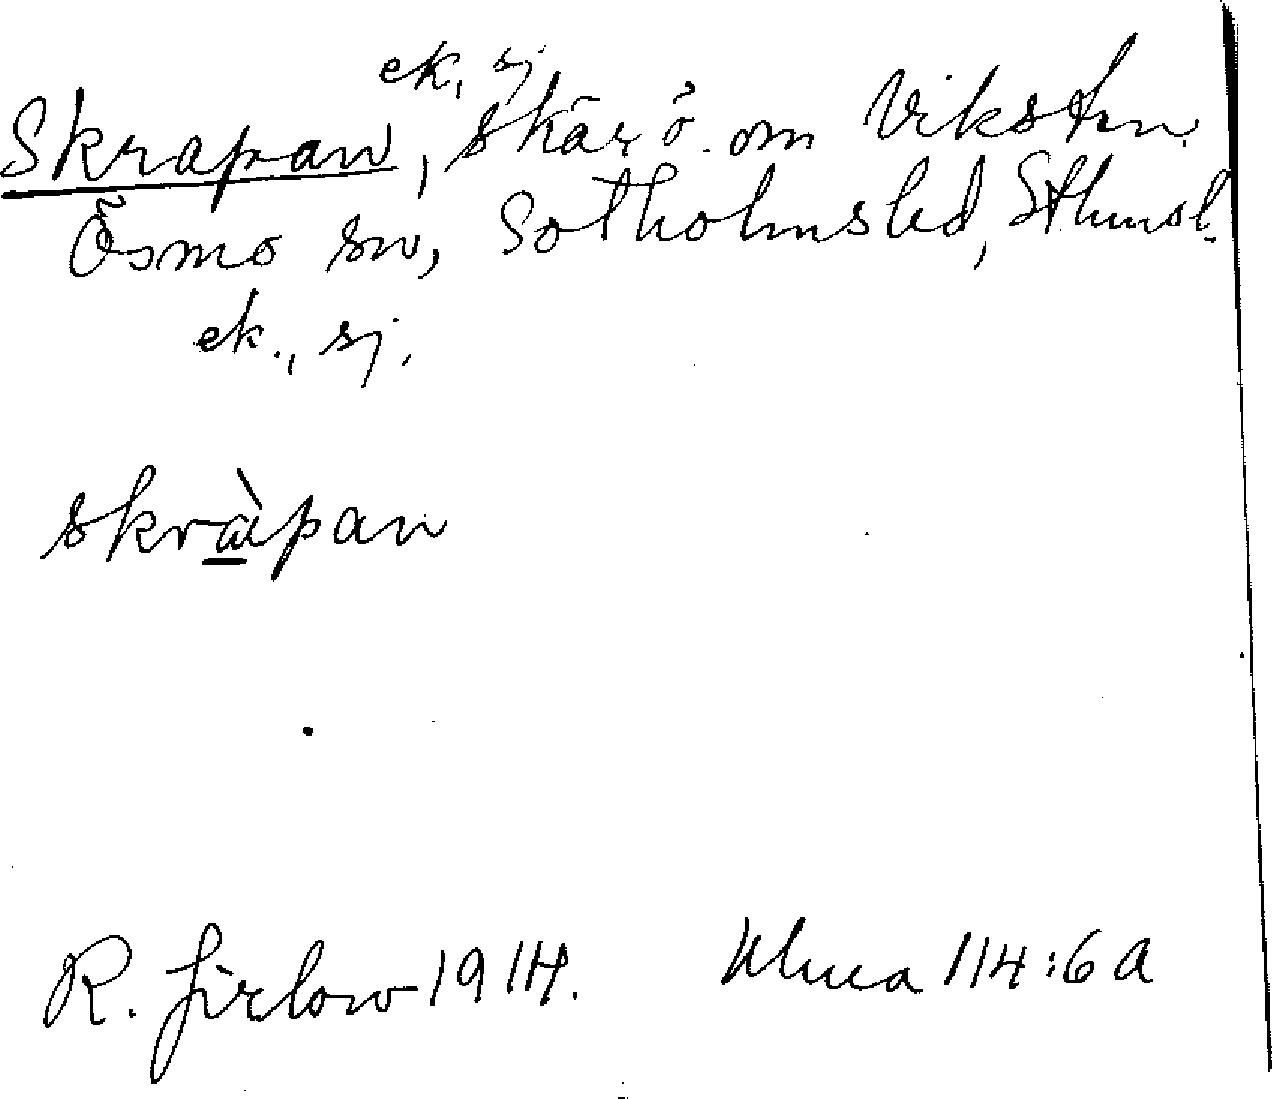 ek., sj
Skrapan, skär ö. om Viksten
Ösmo sn, Sotholms hd, Sthmsl.
ek., sj.
skràpan
R. Jirlow 1914. Uluca 114:6a